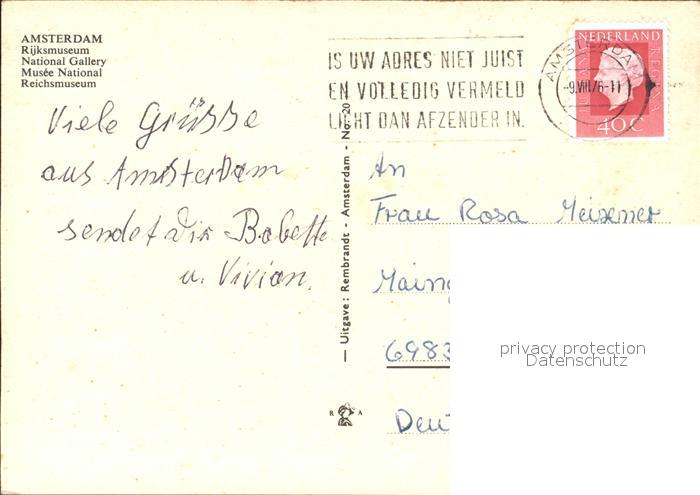 AMSTERDAM
Rijksmuseum
National Gallery
Musée National
Reichsmuseum
Viele Grüsse
aus Amsterdam
sendet Dir Babette
u. Vivian.
IS UW ADRES NIET JUIST
EN VOLLEDIG VERMELD
LICHT DAN AFZENDER IN.
AMSTERDAM
-9.VIII.76-11
NEDERLAND
40c
— Uitgave: Rembrandt - Amsterdam - No. 20
R A
An
Frau Rosa Meixener
Maing
6983
Deu
privacy protection
Datenschutz